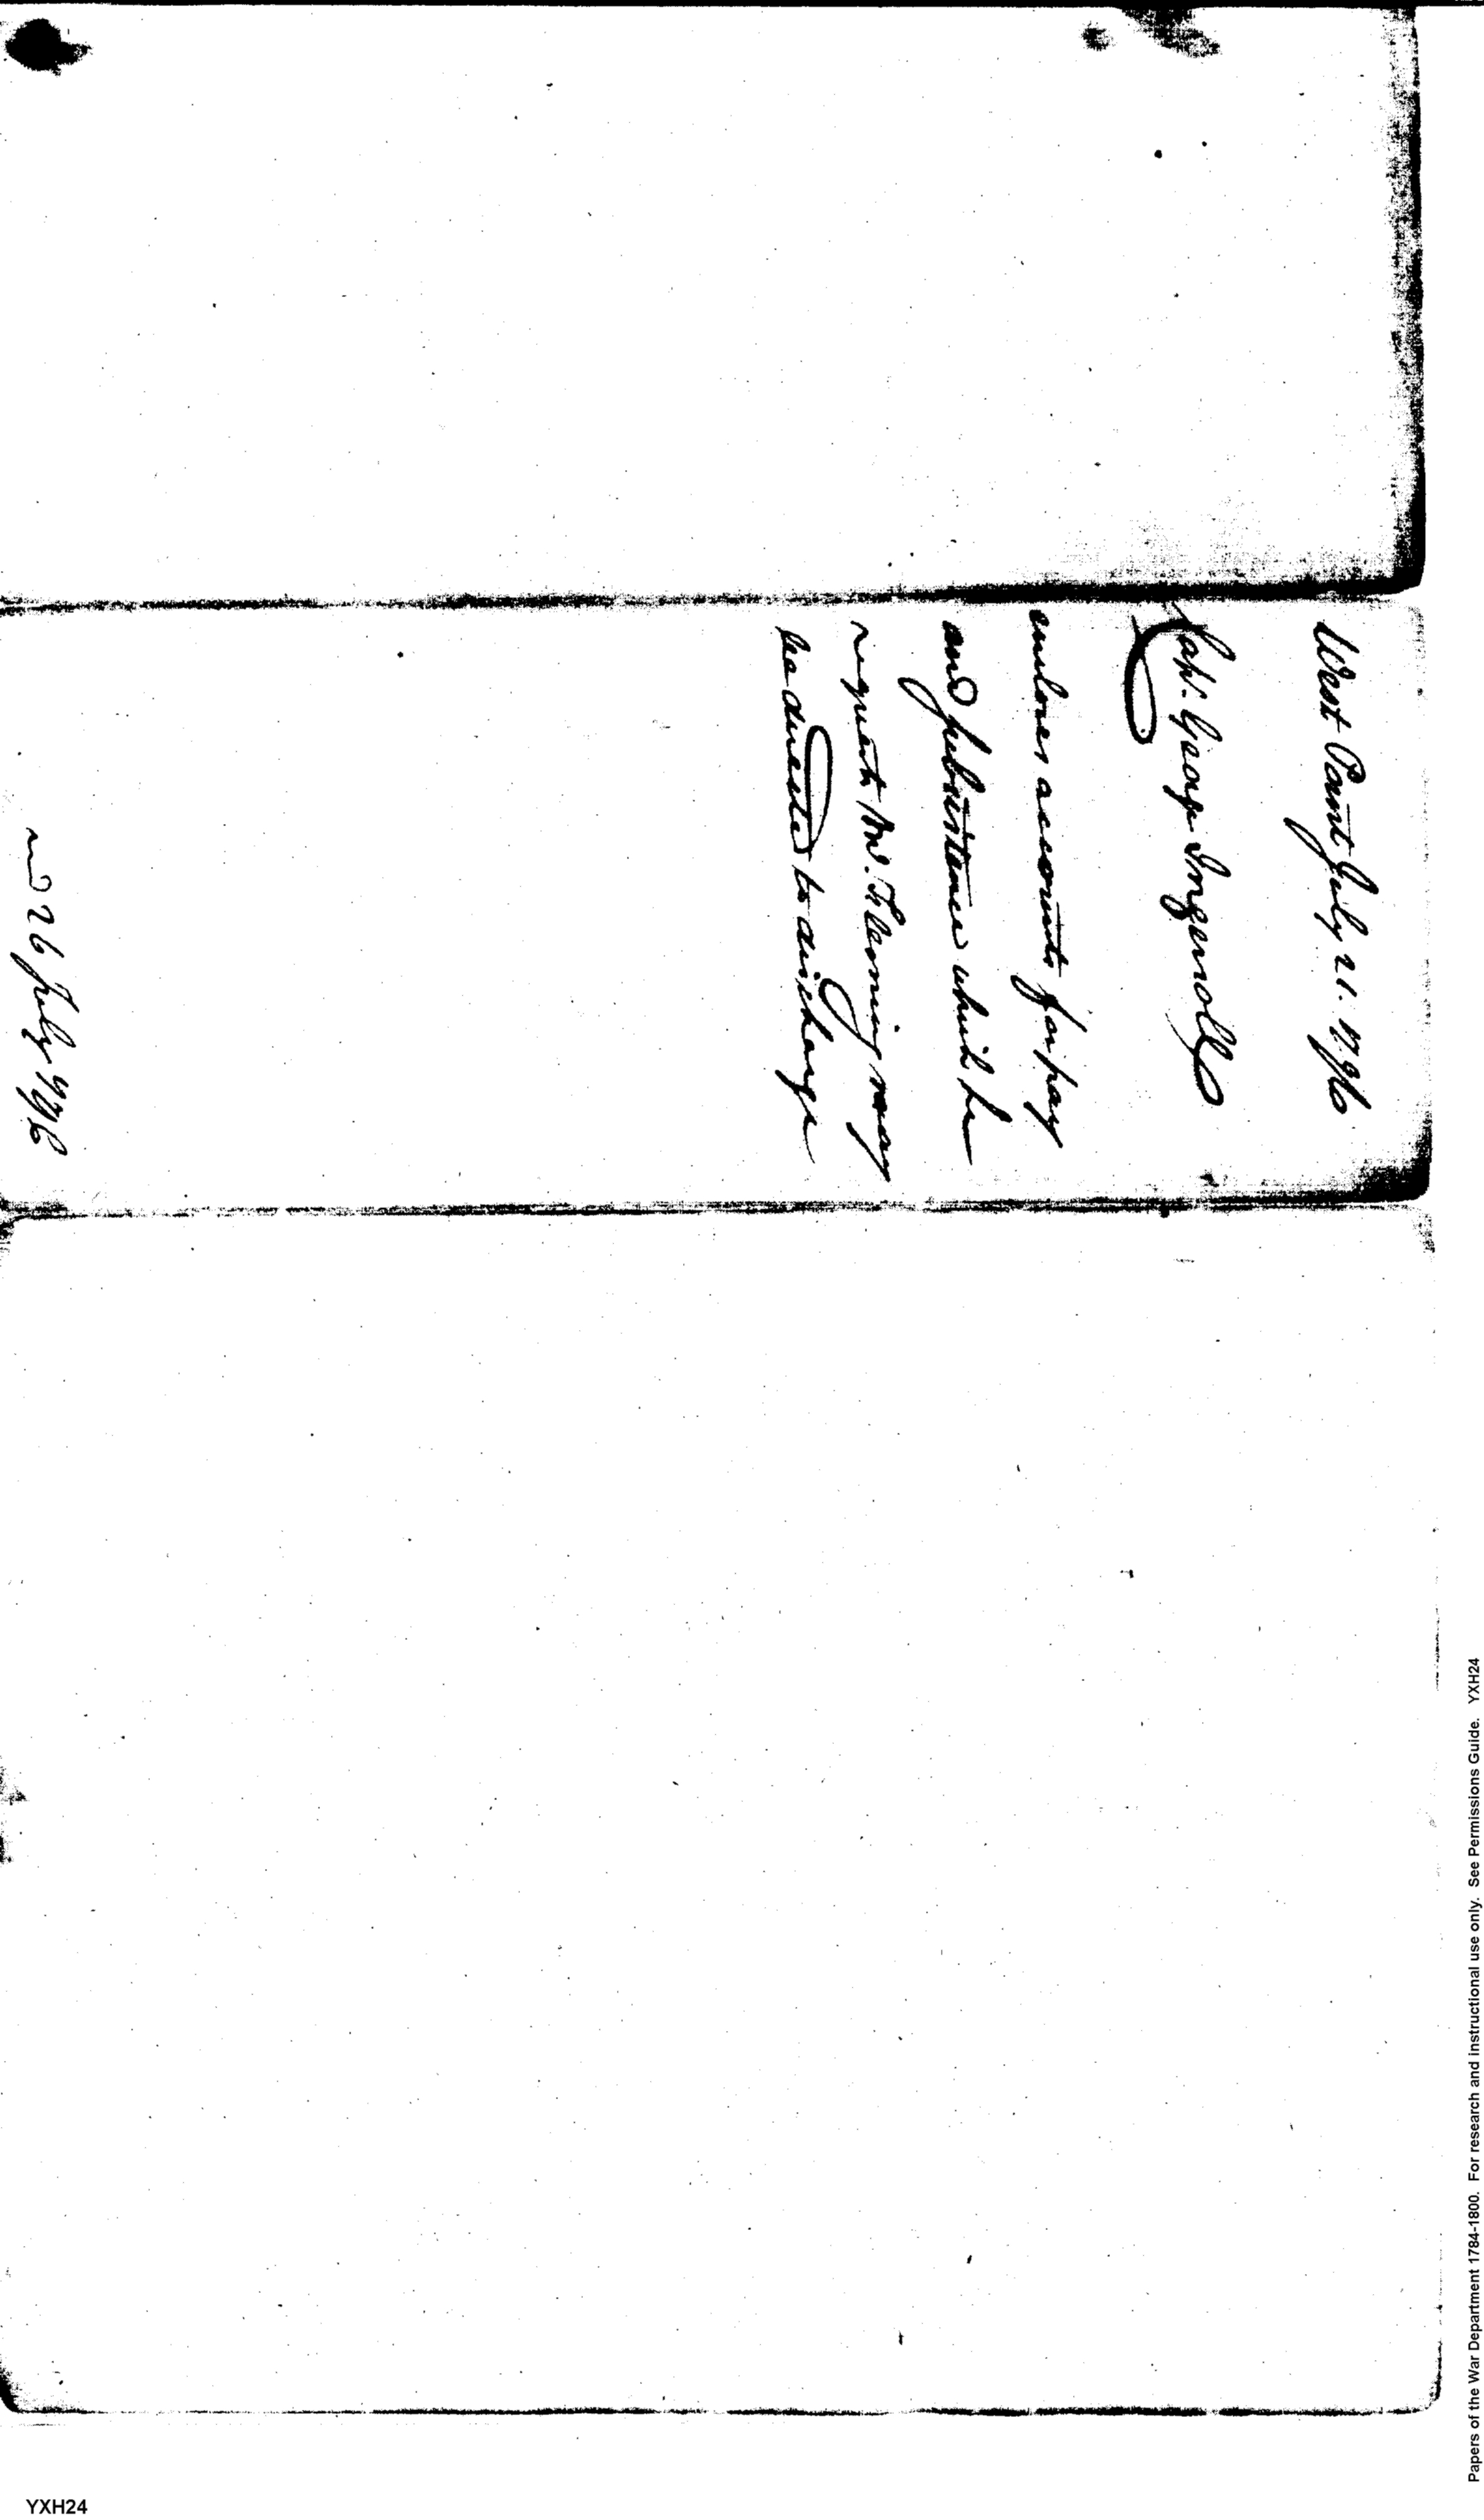 West Point July 21. 1796
Capt. George Ingersoll
encloses accounts for pay
and subsistence which he
requests Mr. Fleming may
be directed to discharge
recd 26 July 1796
Papers of the War Department 1784-1800. For research and instructional use only. See Permissions Guide. YXH24
YXH24